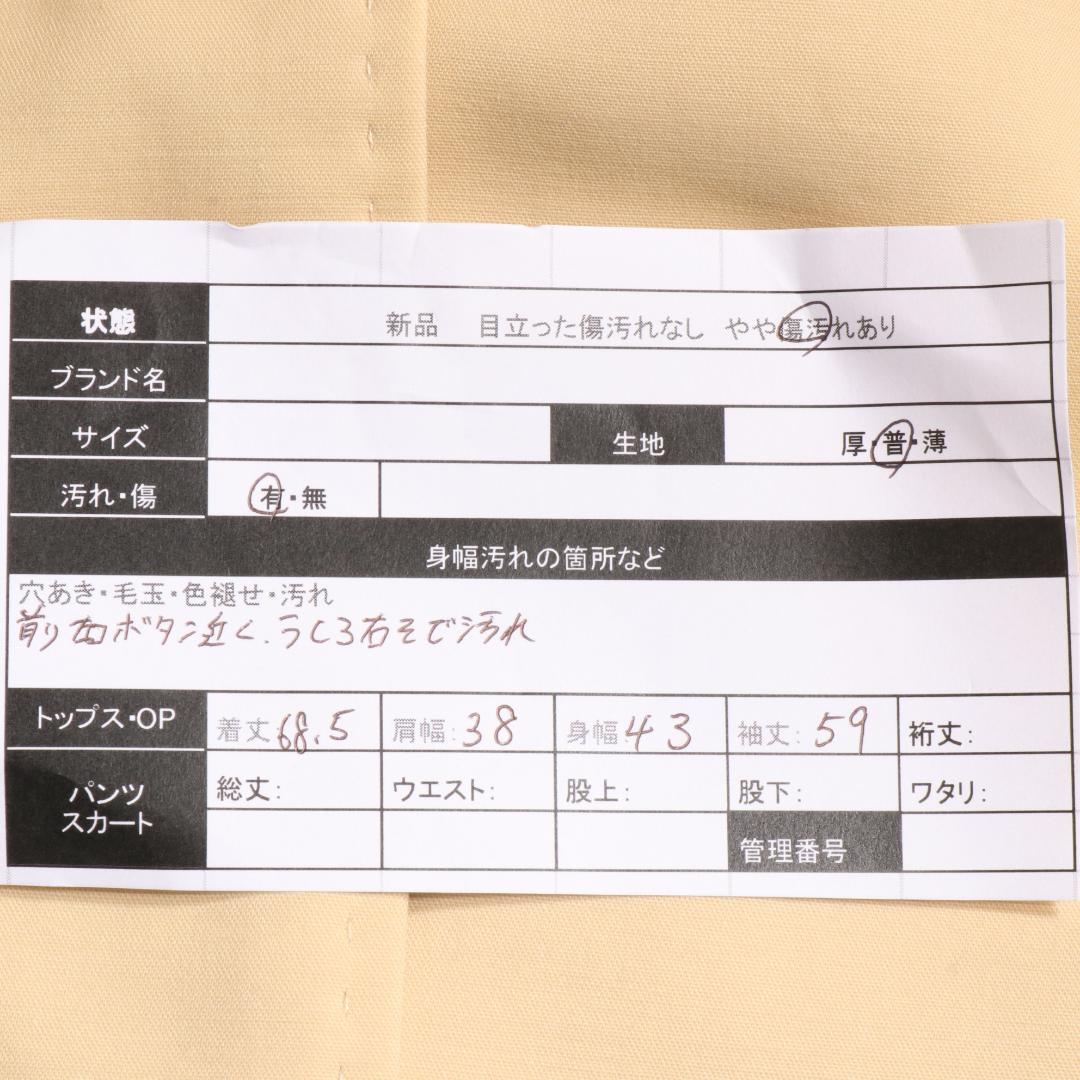 状態 新品 目立った傷汚れなし やや傷汚れあり
ブランド名
サイズ 生地 厚・普・薄
汚れ・傷 有・無
身幅汚れの箇所など
穴あき・毛玉・色褪せ・汚れ
前り右ボタン近く、うしろ右そで汚れ
トップス・OP 着丈:68.5 肩幅:38 身幅:43 袖丈:59 裄丈:
パンツ 総丈: ウエスト: 股上: 股下: ワタリ:
スカート
管理番号